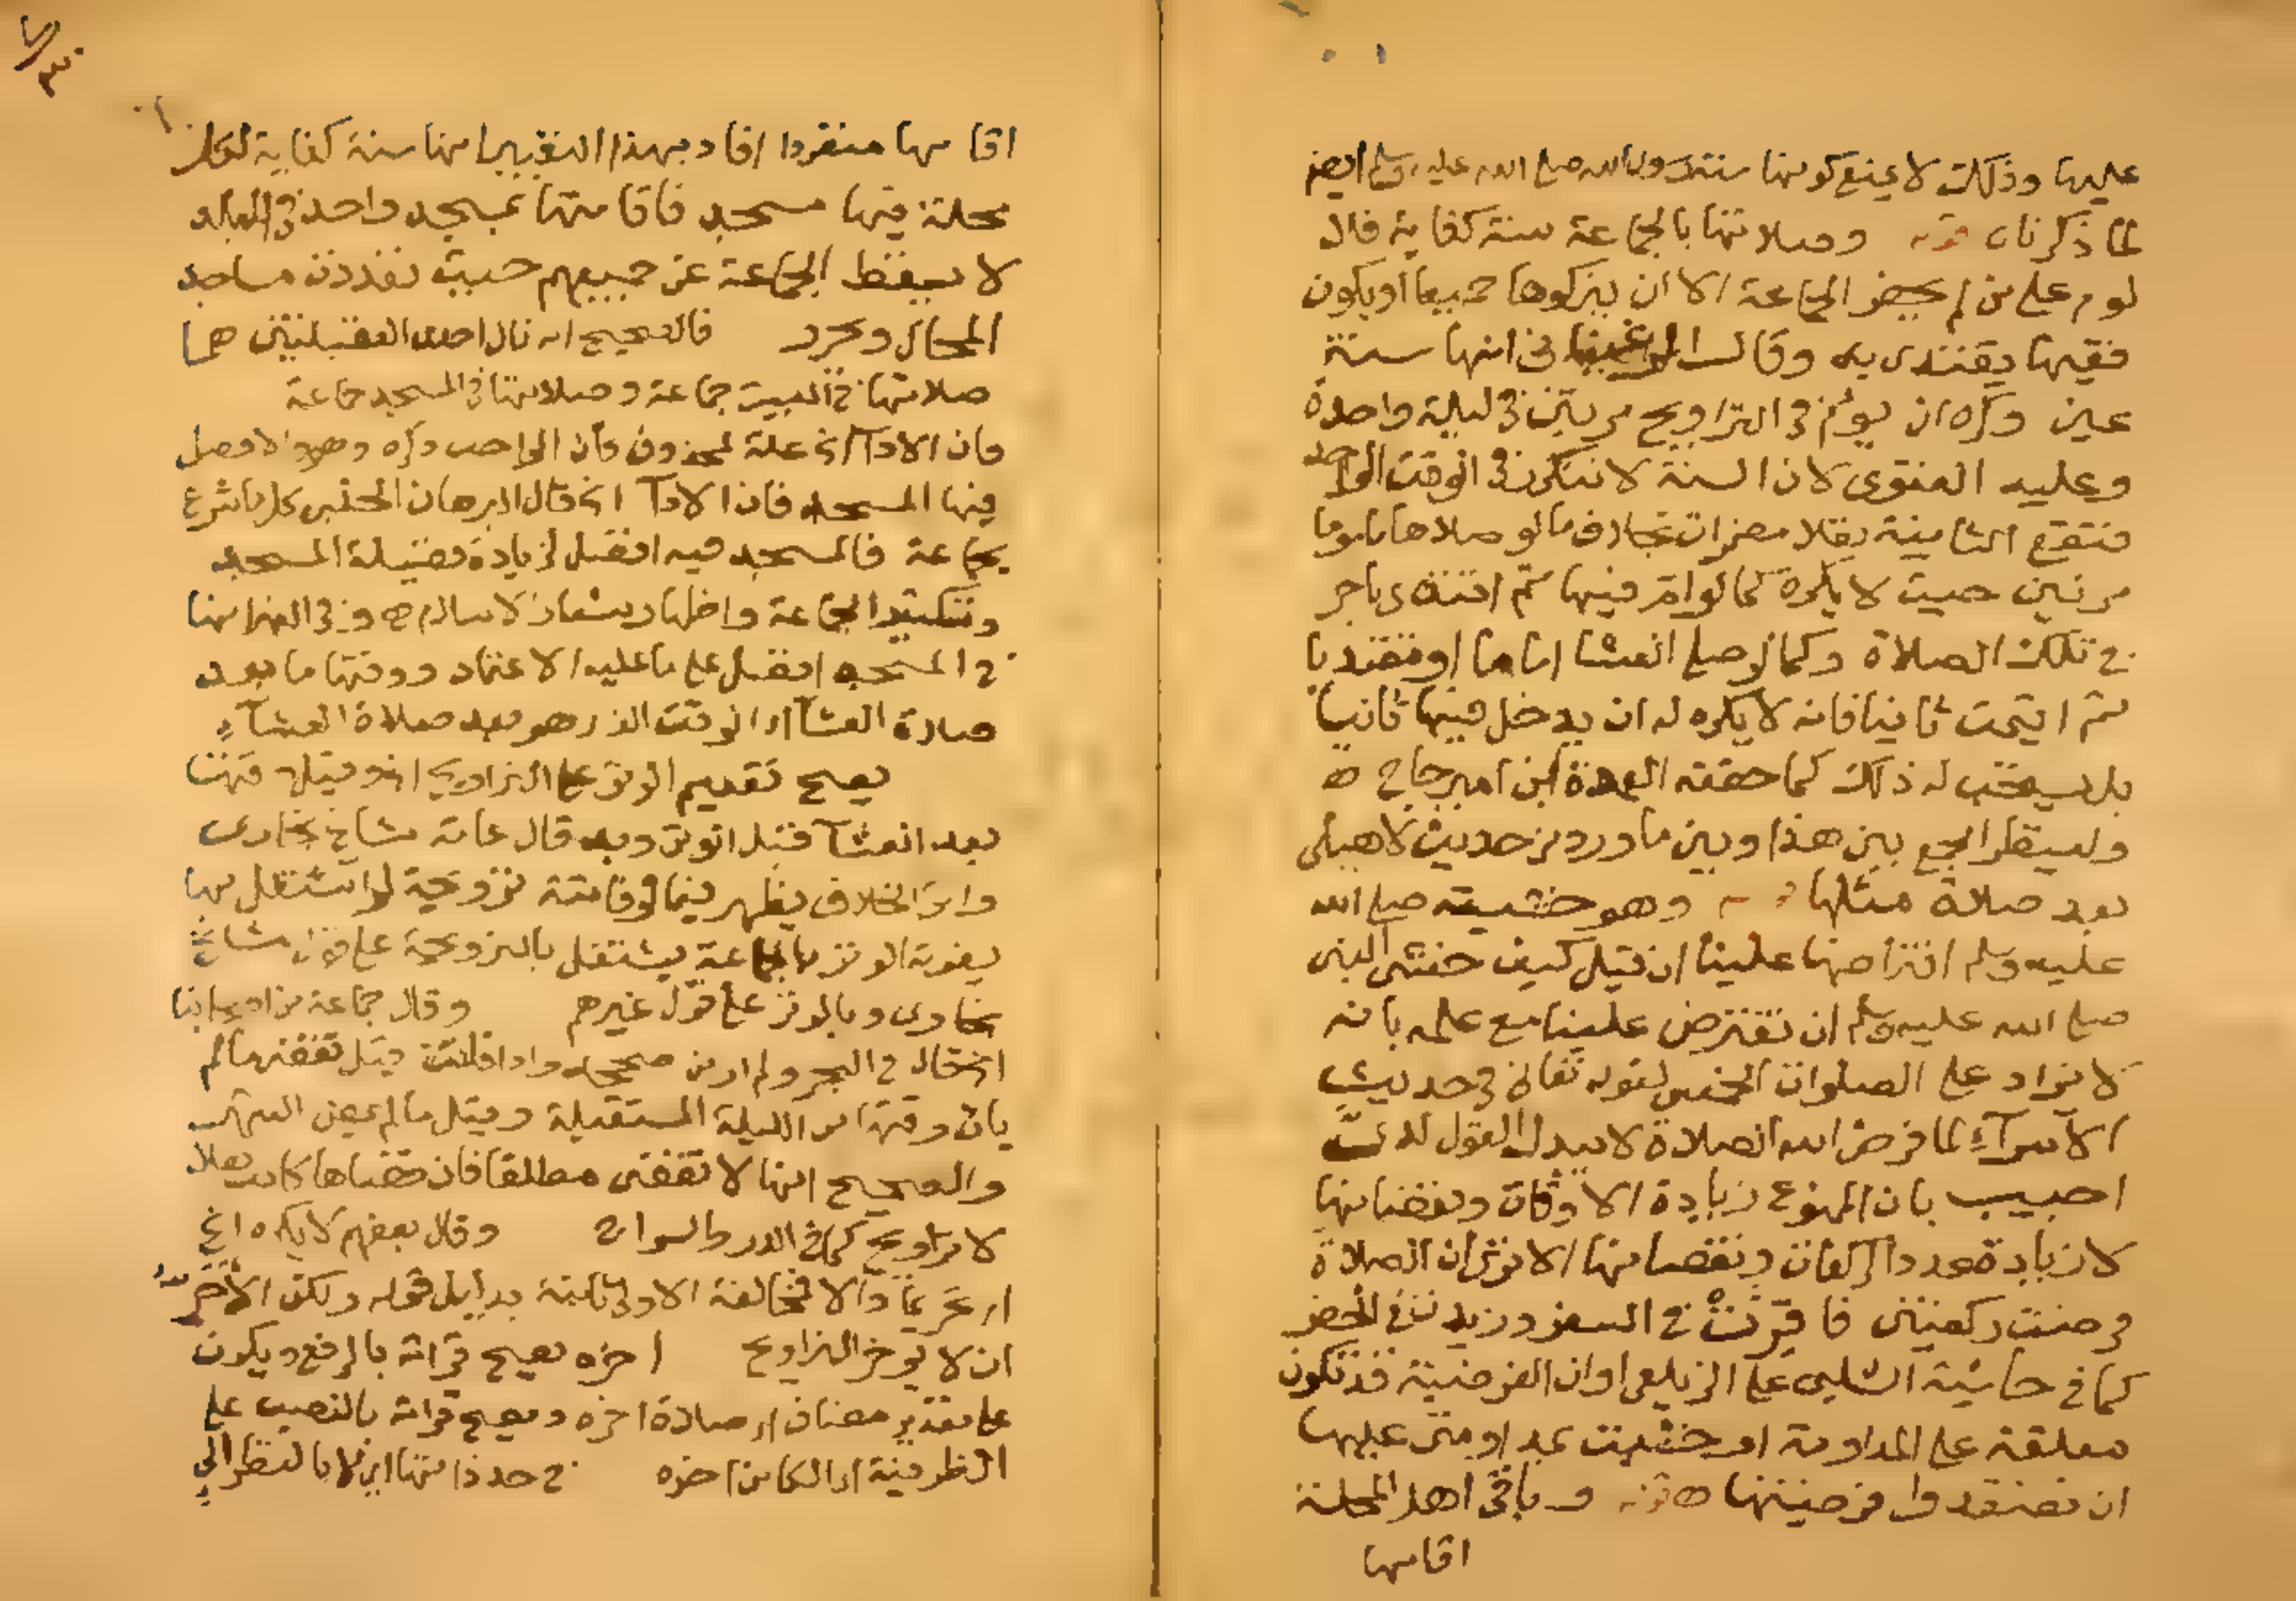 عليها وذلك لا يمنع كونها سنة رسول الله صلى الله عليه وسلم ايضا
لما ذكرناه قوله وصلاتها بالجماعة سنة كفاية قال
لوم على من لم يحضر الجماعة الا ان يتركوها جميعا او يكون
فقيها يقتدى به وقال في انها سنة
عين وكره ان يؤم في التراويح مرتين في ليلة واحدة
وعليه الفتوى لان السنة لا تتكرر في الوقت الواحد
فتقع الثانية نفلا بخلاف ما لو صلاها ماموما
مرتين حيث لا يكره كما لو ام فيها ثم اقتدى باخر
في تلك الصلاة وكما لو صلى العشا اماما او مقتديا
ثم اقيمت ثانيا فانه لا يكره له ان يدخل فيها ثانيا
بل يستحب له ذلك كما حققه العمدة ابن امير حاج ه
ولينظر الجمع بين هذا وبين ما ورد من حديث لا يصلى
بعد صلاة مثلها قوله وهو خشية صلى الله
عليه وسلم افتراضها علينا ان قيل كيف خشى النبى
صلى الله عليه وسلم ان تفترض علينا مع علمه بانه
لا يزاد على الصلوات الخمس لقوله تعالى في حديث
الاسرآء لما فرض الله الصلاة لا يبدل القول لدى
اجيب بان الممنوع زيادة الاوقات ونقصانها
لا زيادة عدد الركعات ونقصانها الا ترى ان الصلاة
فرضت ركعتين فاقرت في السفر وزيدت في الحضر
كما في حاشية الشلبى على الزيلعى او ان الفرضية قد تكون
معلقة على المداومة او خشيت عدا ومتى عليها
ان تعتقدوا فرضيتها ه قوله وباقى اهل المحلة
اقامها
اقامها منفردا افاد بهذا التقييد انها سنة كفاية لكل
محلة فيها مسجد فاقامتها بمسجد واحد في البلد
لا يسقط الجماعة عن جميعهم حيث تعددت مساجد
المحال وحرر فالصحيح انه نال احدى الفضيلتين هما
صلاتها في البيت جماعة وصلاتها في المسجد جماعة
فان الادآ الخ علة لمحذوف كان الواجب ذكره وهو والافضل
فيها المسجد فان الادآ الخ قال البرهان الحلبى كل ما شرع
بجماعة فالمسجد فيه افضل لزيادة فضيلة المسجد
وتكثير الجماعة واظهار شعائر الاسلام ه وفي انها
في المسجد افضل على ما عليه الاعتماد ووقتها ما بعد
صلاة العشآ اى الوقت الذى هو بعد صلاة العشآء
يصح تقديم الوتر على التراويح الخ وقيل وقتها
بعد العشآ قبل الوتر وبه قال عامة مشايخ بخارى
واثر الخلاف يظهر فيما لو فاتته ترويحة لو اشتغل بها
يفوته الوتر بالجماعة يشتغل بالترويحة على قول مشايخ
بخارى وبالوتر على قول غيرهم وقال جماعة من اصحابنا
الخ قال في البحر ولم ار من صححه واذا فاتت قيل تقضيها لم
يات وقتها من الليلة المستقبلة وقيل ما لم يمض الشهر
والصحيح انها لا تقضى مطلقا فان قضاها كانت نفلا
لا تراويح كما في الدرر والسراج وقال بعضهم لا يكره الخ
اى تحريما والا فمخالفة الاولى ثابتة بدليل قوله ولكن الاحب
ان لا يؤخر التراويح اخره يصح قراته بالرفع ويكون
على تقدير مضاف اى صلاة اخره ويصح قراته بالنصب على
الظرفية اى الكائن اخره في حد ذاتها اى لا بالنظر الى